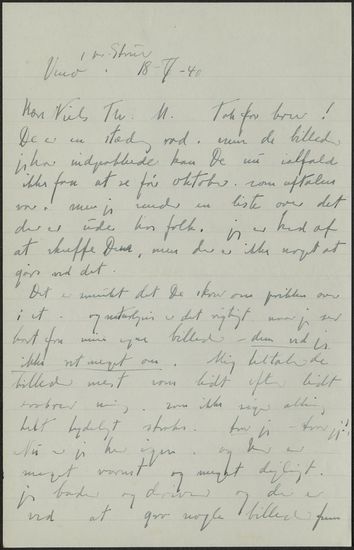 Vinø pr. Struer
18-V-40
Kære Niels Th. M. Tak for brev!
De er en stædig rad. men de billeder
jeg har indpakkede kan De nu ialfald
ikke faa at se før Oktober. som aftalen
var. men jeg sender en liste over det
der er ude hos folk. jeg er ked af
at skuffe Dem, men der er ikke noget at
gøre ved det.
Det er smukt det De skrev om
i et. og naturligvis er det rigtigt naar jeg ser
bort fra mine egne billeder – dem ved jeg
ikke ret meget om. Mig
billed mest som lidt efter lidt
som ikke siger alting
helt tydeligt straks. tror jeg – tror jeg!
Nu er jeg her igen. og her er
meget varmt og meget dejligt.
jeg bader og driver og der er
ved at gro nogle billeder frem